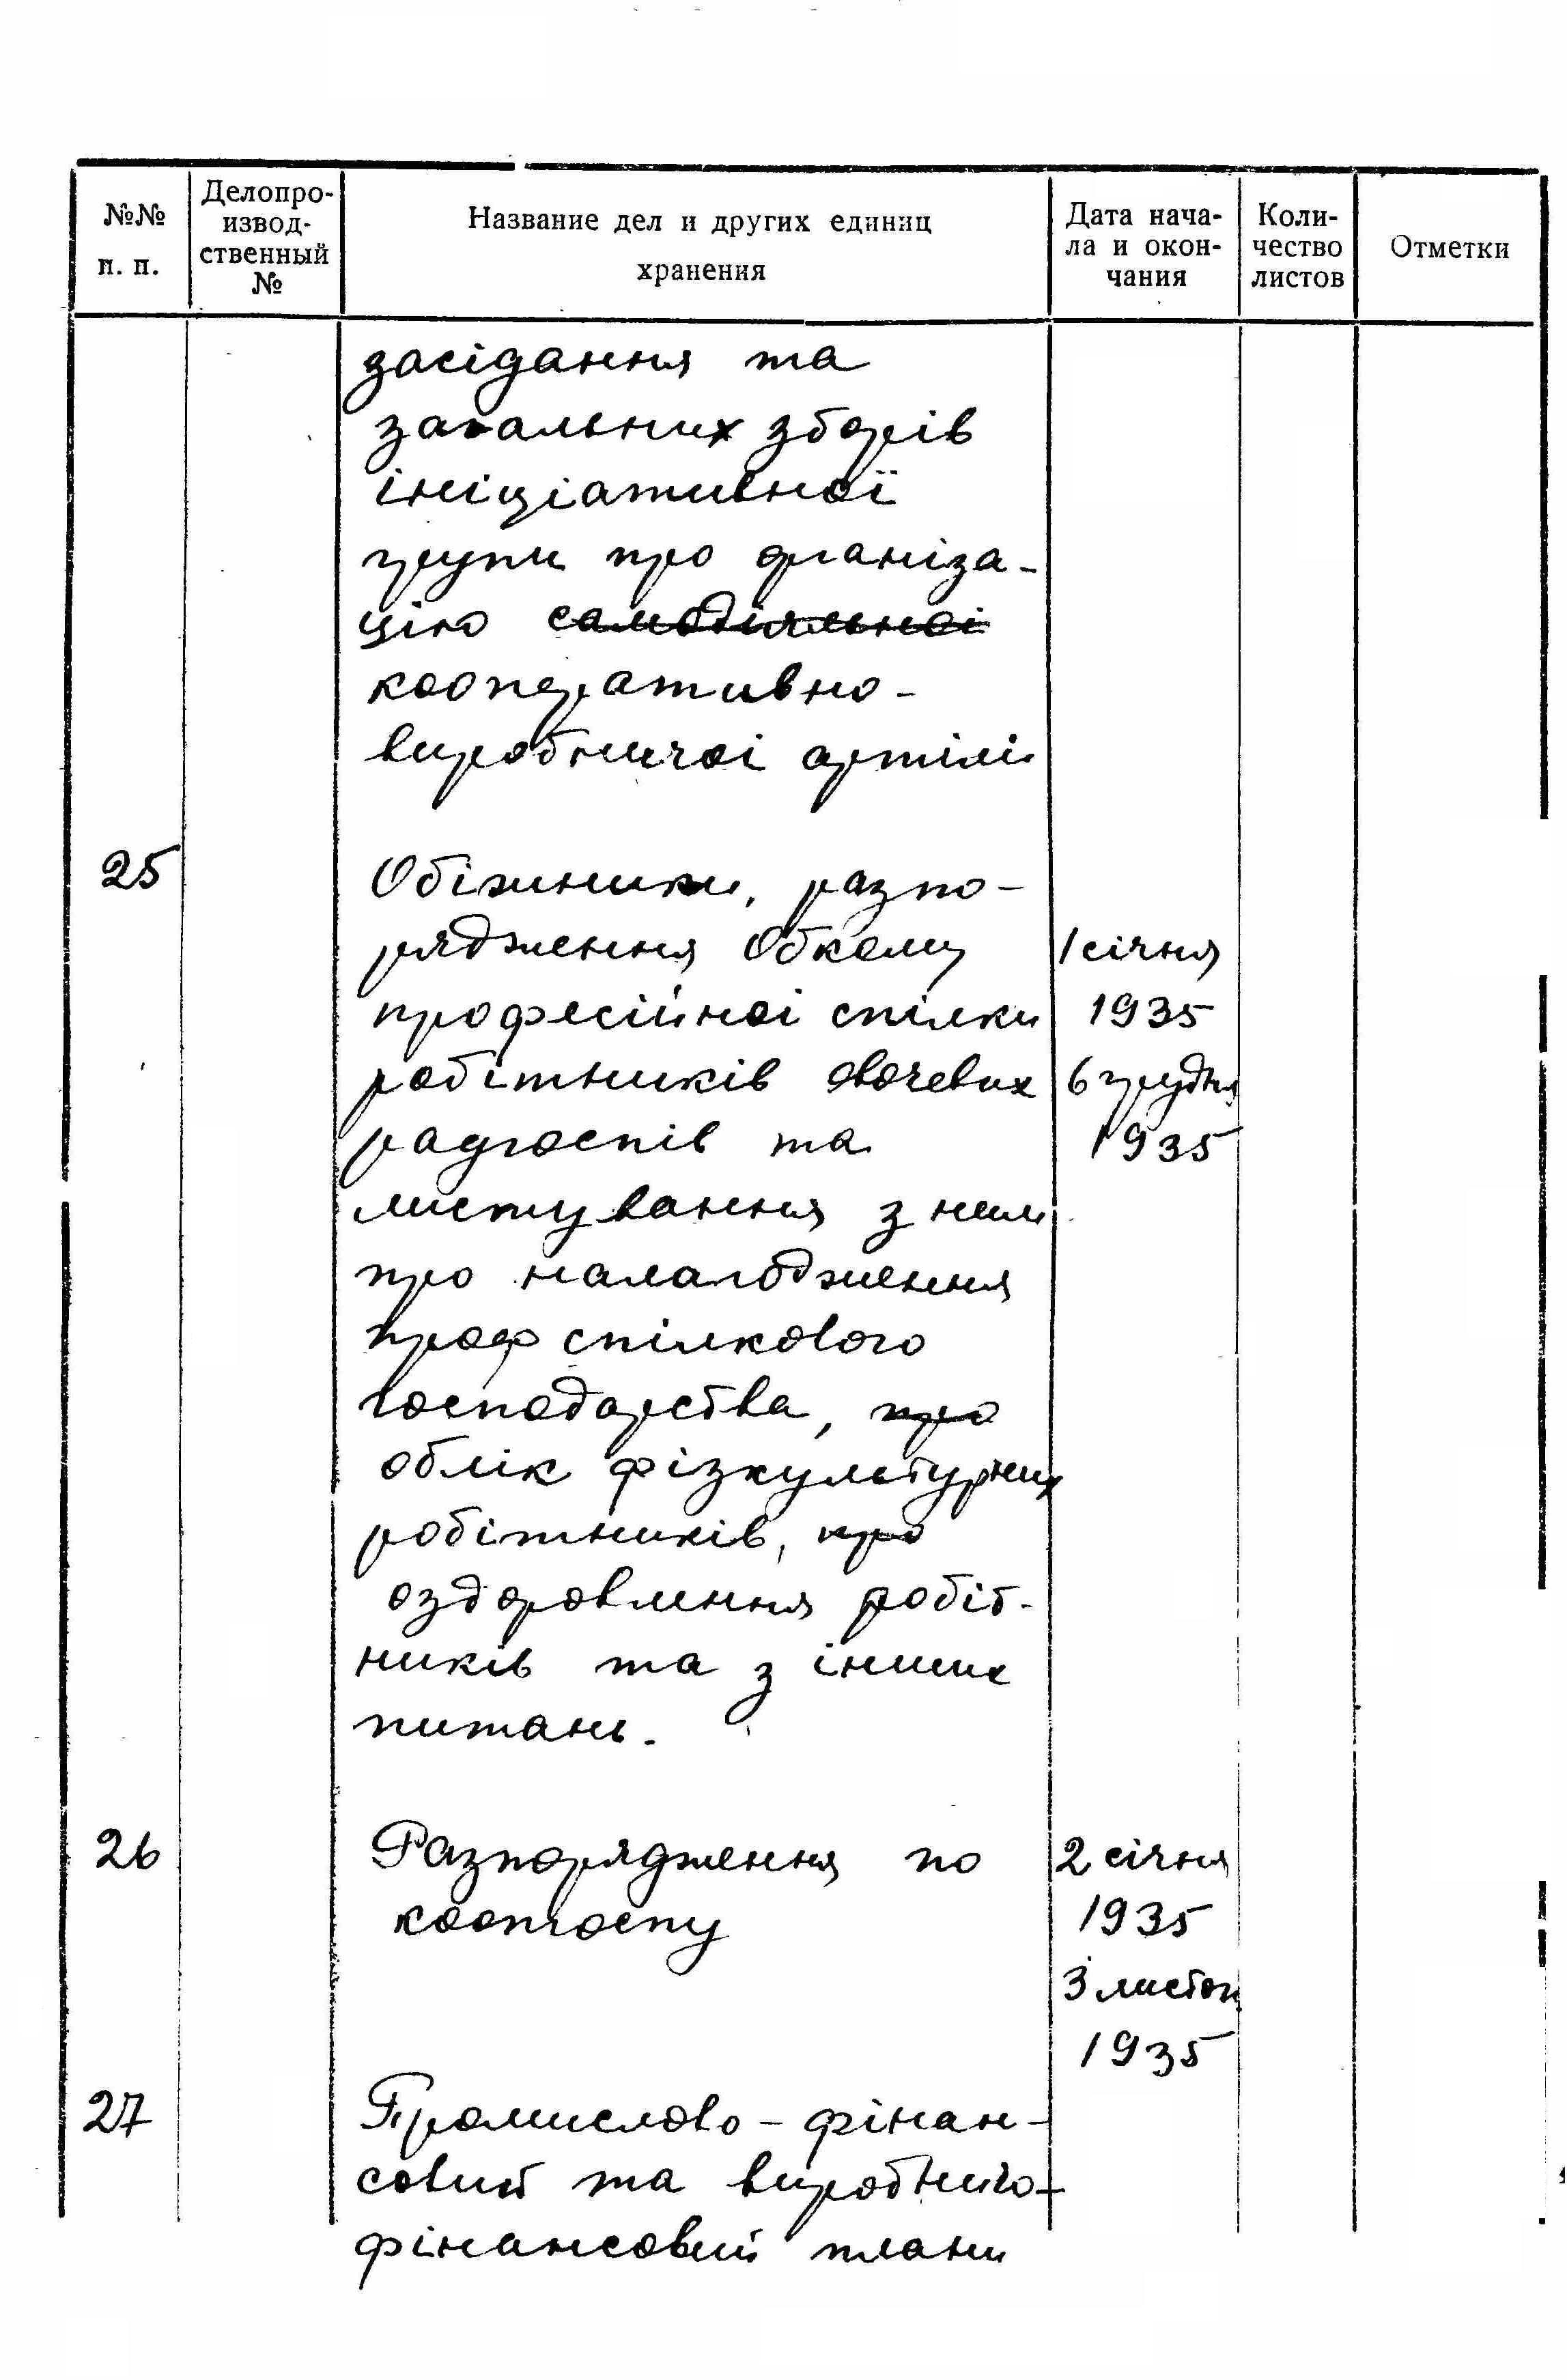 №№ п. п.
Делопро-
извод-
ственный
№
Название дел и других единиц
хранения
Дата нача-
ла и окон-
чания
Коли-
чество
листов
Отметки
засідання та
загальних зборів
ініціативної
групи про організа-
цію самодіяльноі
кооперативно-
виробничоі артілі
25
Обіжники, разпо-
рядження Обкому
1 січня
професійноі спілки
1935
робітників овочевих
6 грудня
радгоспів та
1935
листування з ним
про налагодження
проф спілкового
господарства, про
облік фізкультурних
робітників, про
оздоровлення робіт-
ників та з інших
питань.
26
Разпорядження по
2 січня
коопгоспу
1935
3 листоп.
1935
27
Промислово-фінан-
совий та виробничо-
фінансовий плани